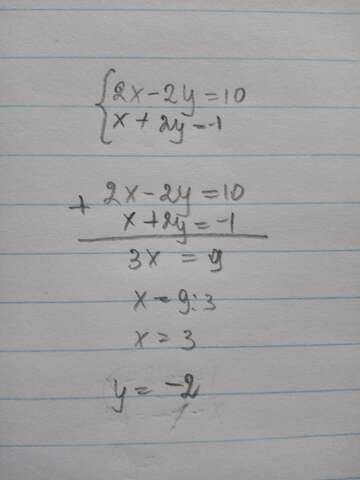 2x-2y=10
x+2y=-1
2x-2y=10
+ x+2y=-1
3x =9
x=9:3
x=3
y=-2